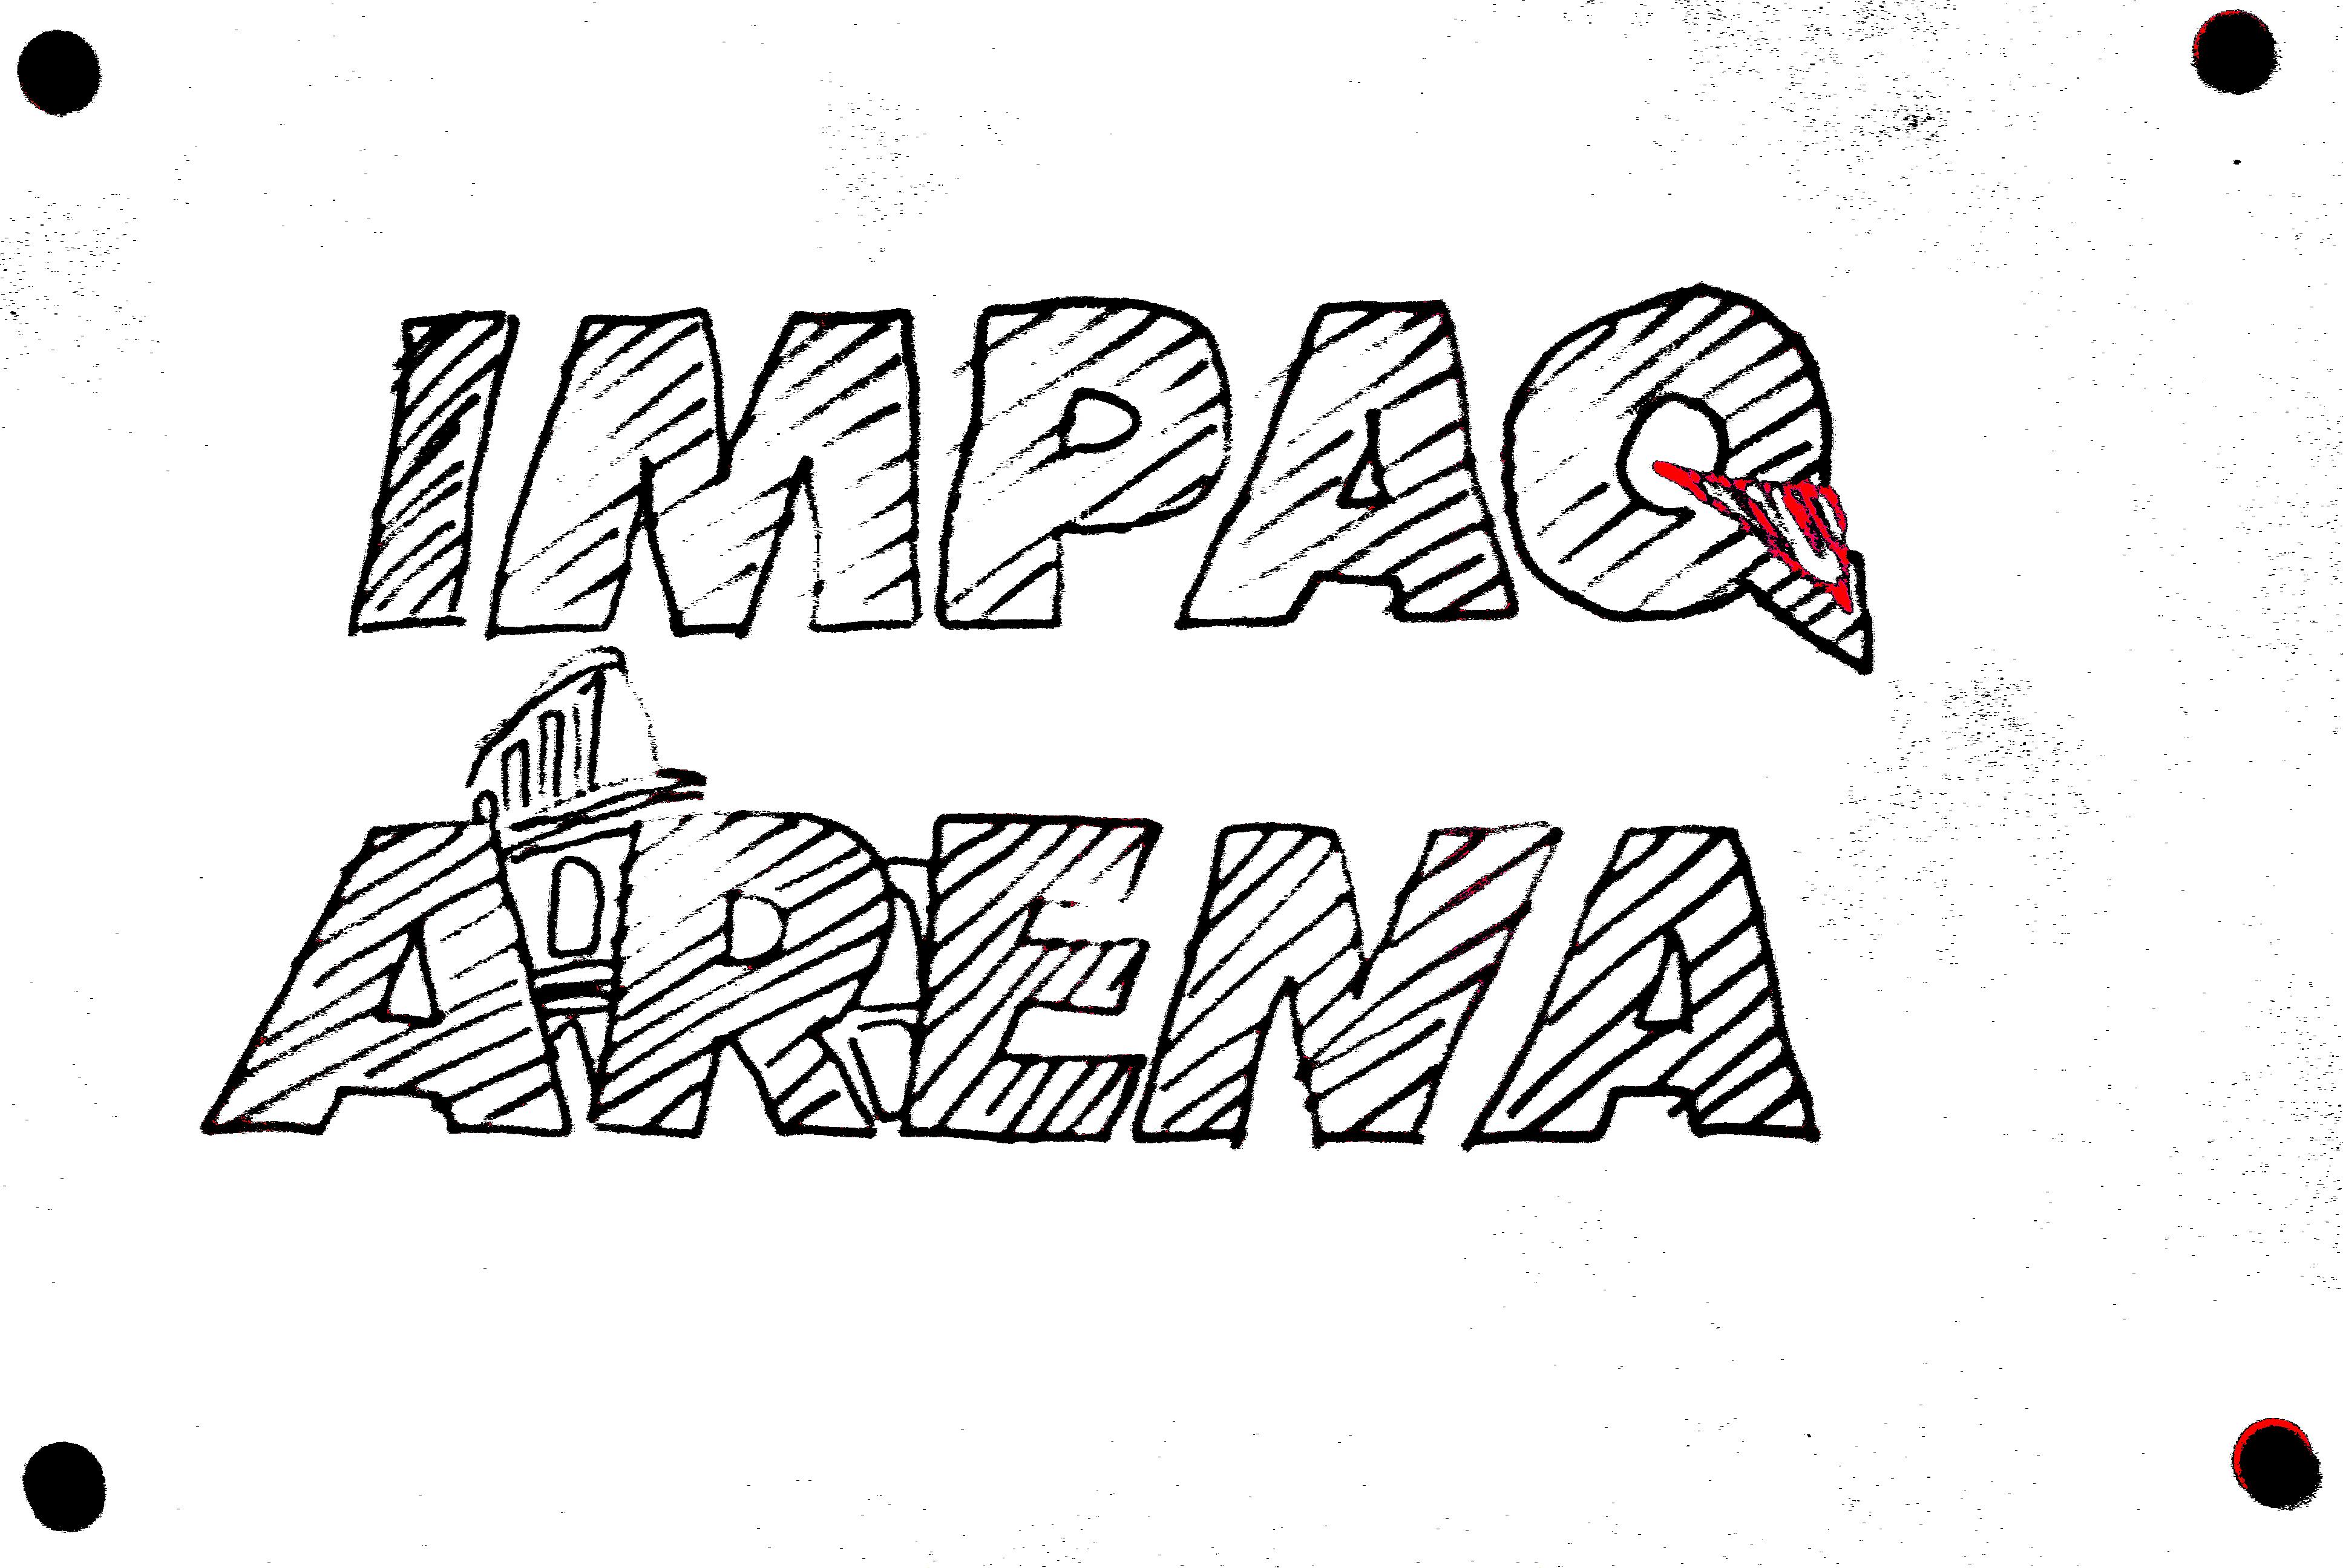 IMPAQ
ARENA